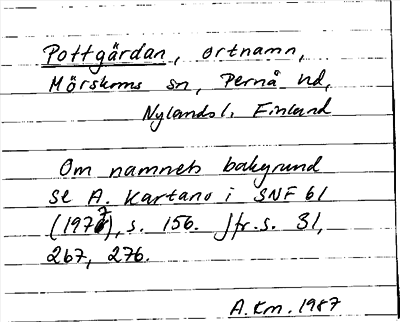 Pottgårdan, ortnamn,
Mörskoms sn, Pernå hd,
Nylands l. Finland
Om namnets bakgrund
se A. Kartano i SNF 61
(1977), s. 156. Jfr. s. 31,
267, 276.
A.Km. 1987